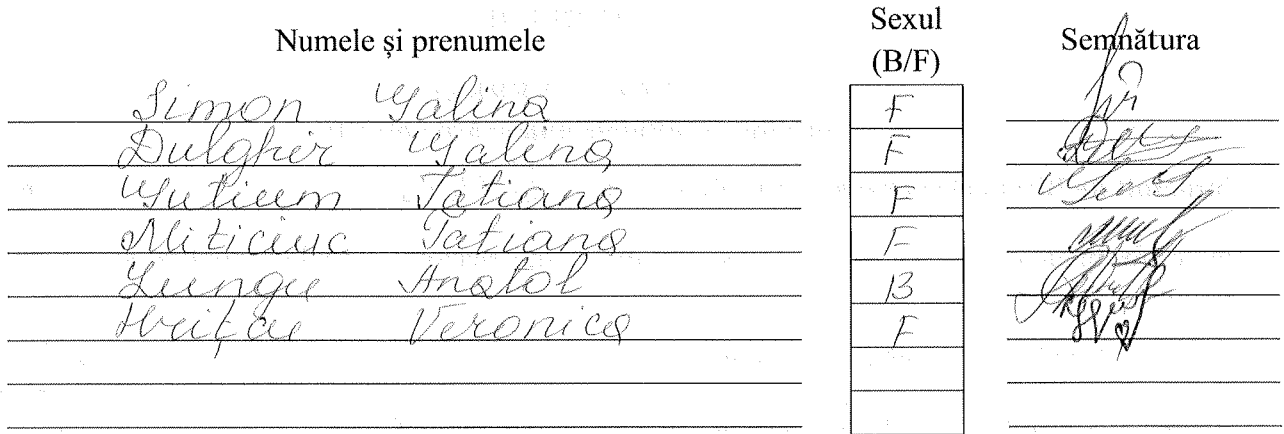 Numele și prenumele Sexul (B/F) Semnătura
Simon Galina F
Dulghir Galina F
Gutium Tatiana F
Miticiuc Tatiana F
Lungu Anatol B
Hrițcu Veronica F